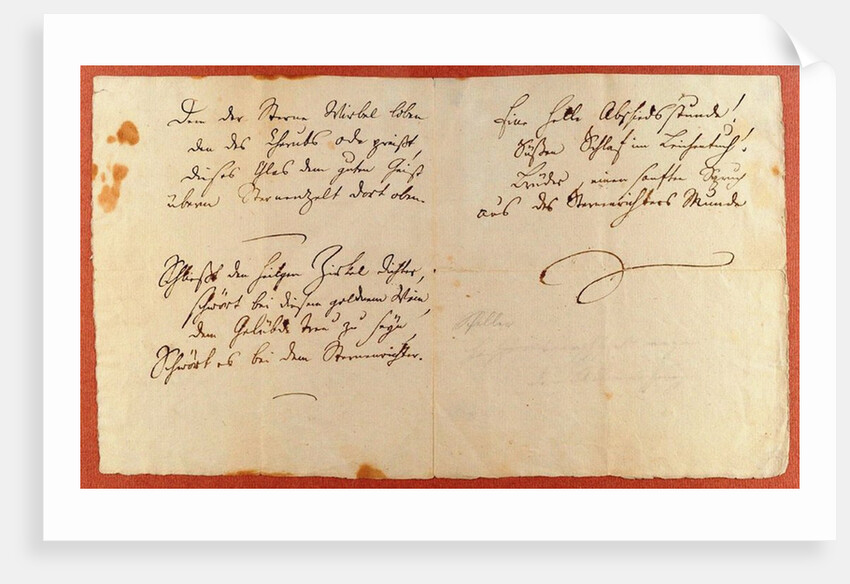 Dem der Sterne Wirbel loben
den des Cherubs ode preißt,
dieses Glas dem guten Geist
überm Sternenzelt dort oben.
Schließt den heilgen Zirkel dichter,
schwört bei diesem goldnem Wein
dem Gelübde treu zu seyn,
Schwört es bei dem Sternenrichter.
Eine helle Abschiedsstunde!
Süßen Schlaf im Leichentuch!
Brüder, einen sanften Spruch
aus des Sternrichters Munde
Schiller